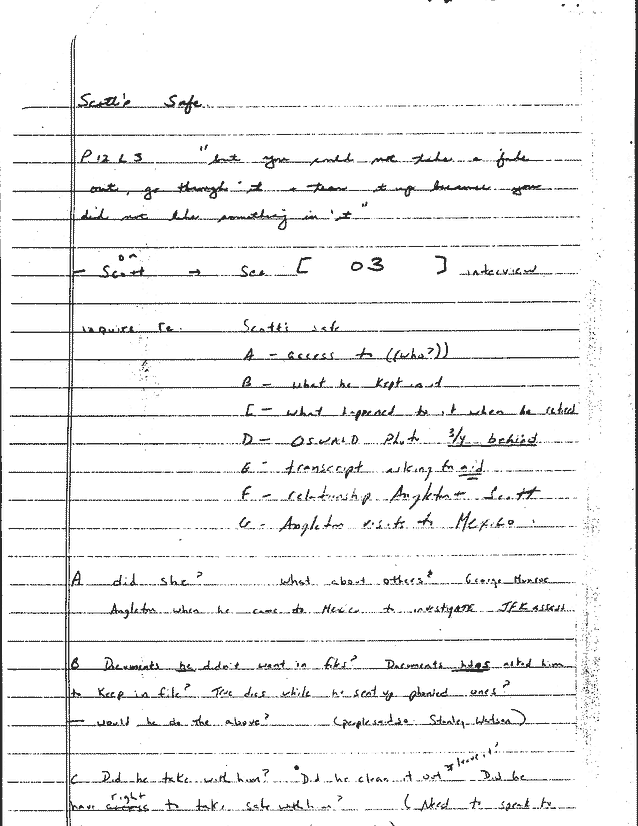 Scott's Safe
P 12 L 3 "but you could not take a file
out, go through it & tear it up because you
did not like something in it"
on
- Scott → See [ 03 ] interview
inquire re: Scott's safe
A - access to ((who?))
B - what he kept in it
C - what happened to it when he retired
D - OSWALD Photo 3/4 behind
E - transcript asking for aid
F - relationship Angleton + Scott
G - Angleton visits to Mexico.
A did she? What about others? George Munroe
Angleton when he came to Mexico to investigate JFK assass
B Documents he didn't want in files? Documents hdqs asked him
to keep in file? True docs while he sent up phonied ones?
- would he do the above? (people said so Stanley Watson)
leave it?
C Did he take with him? Did he clean it out Did he
right
have access to take safe with him? (Need to speak to